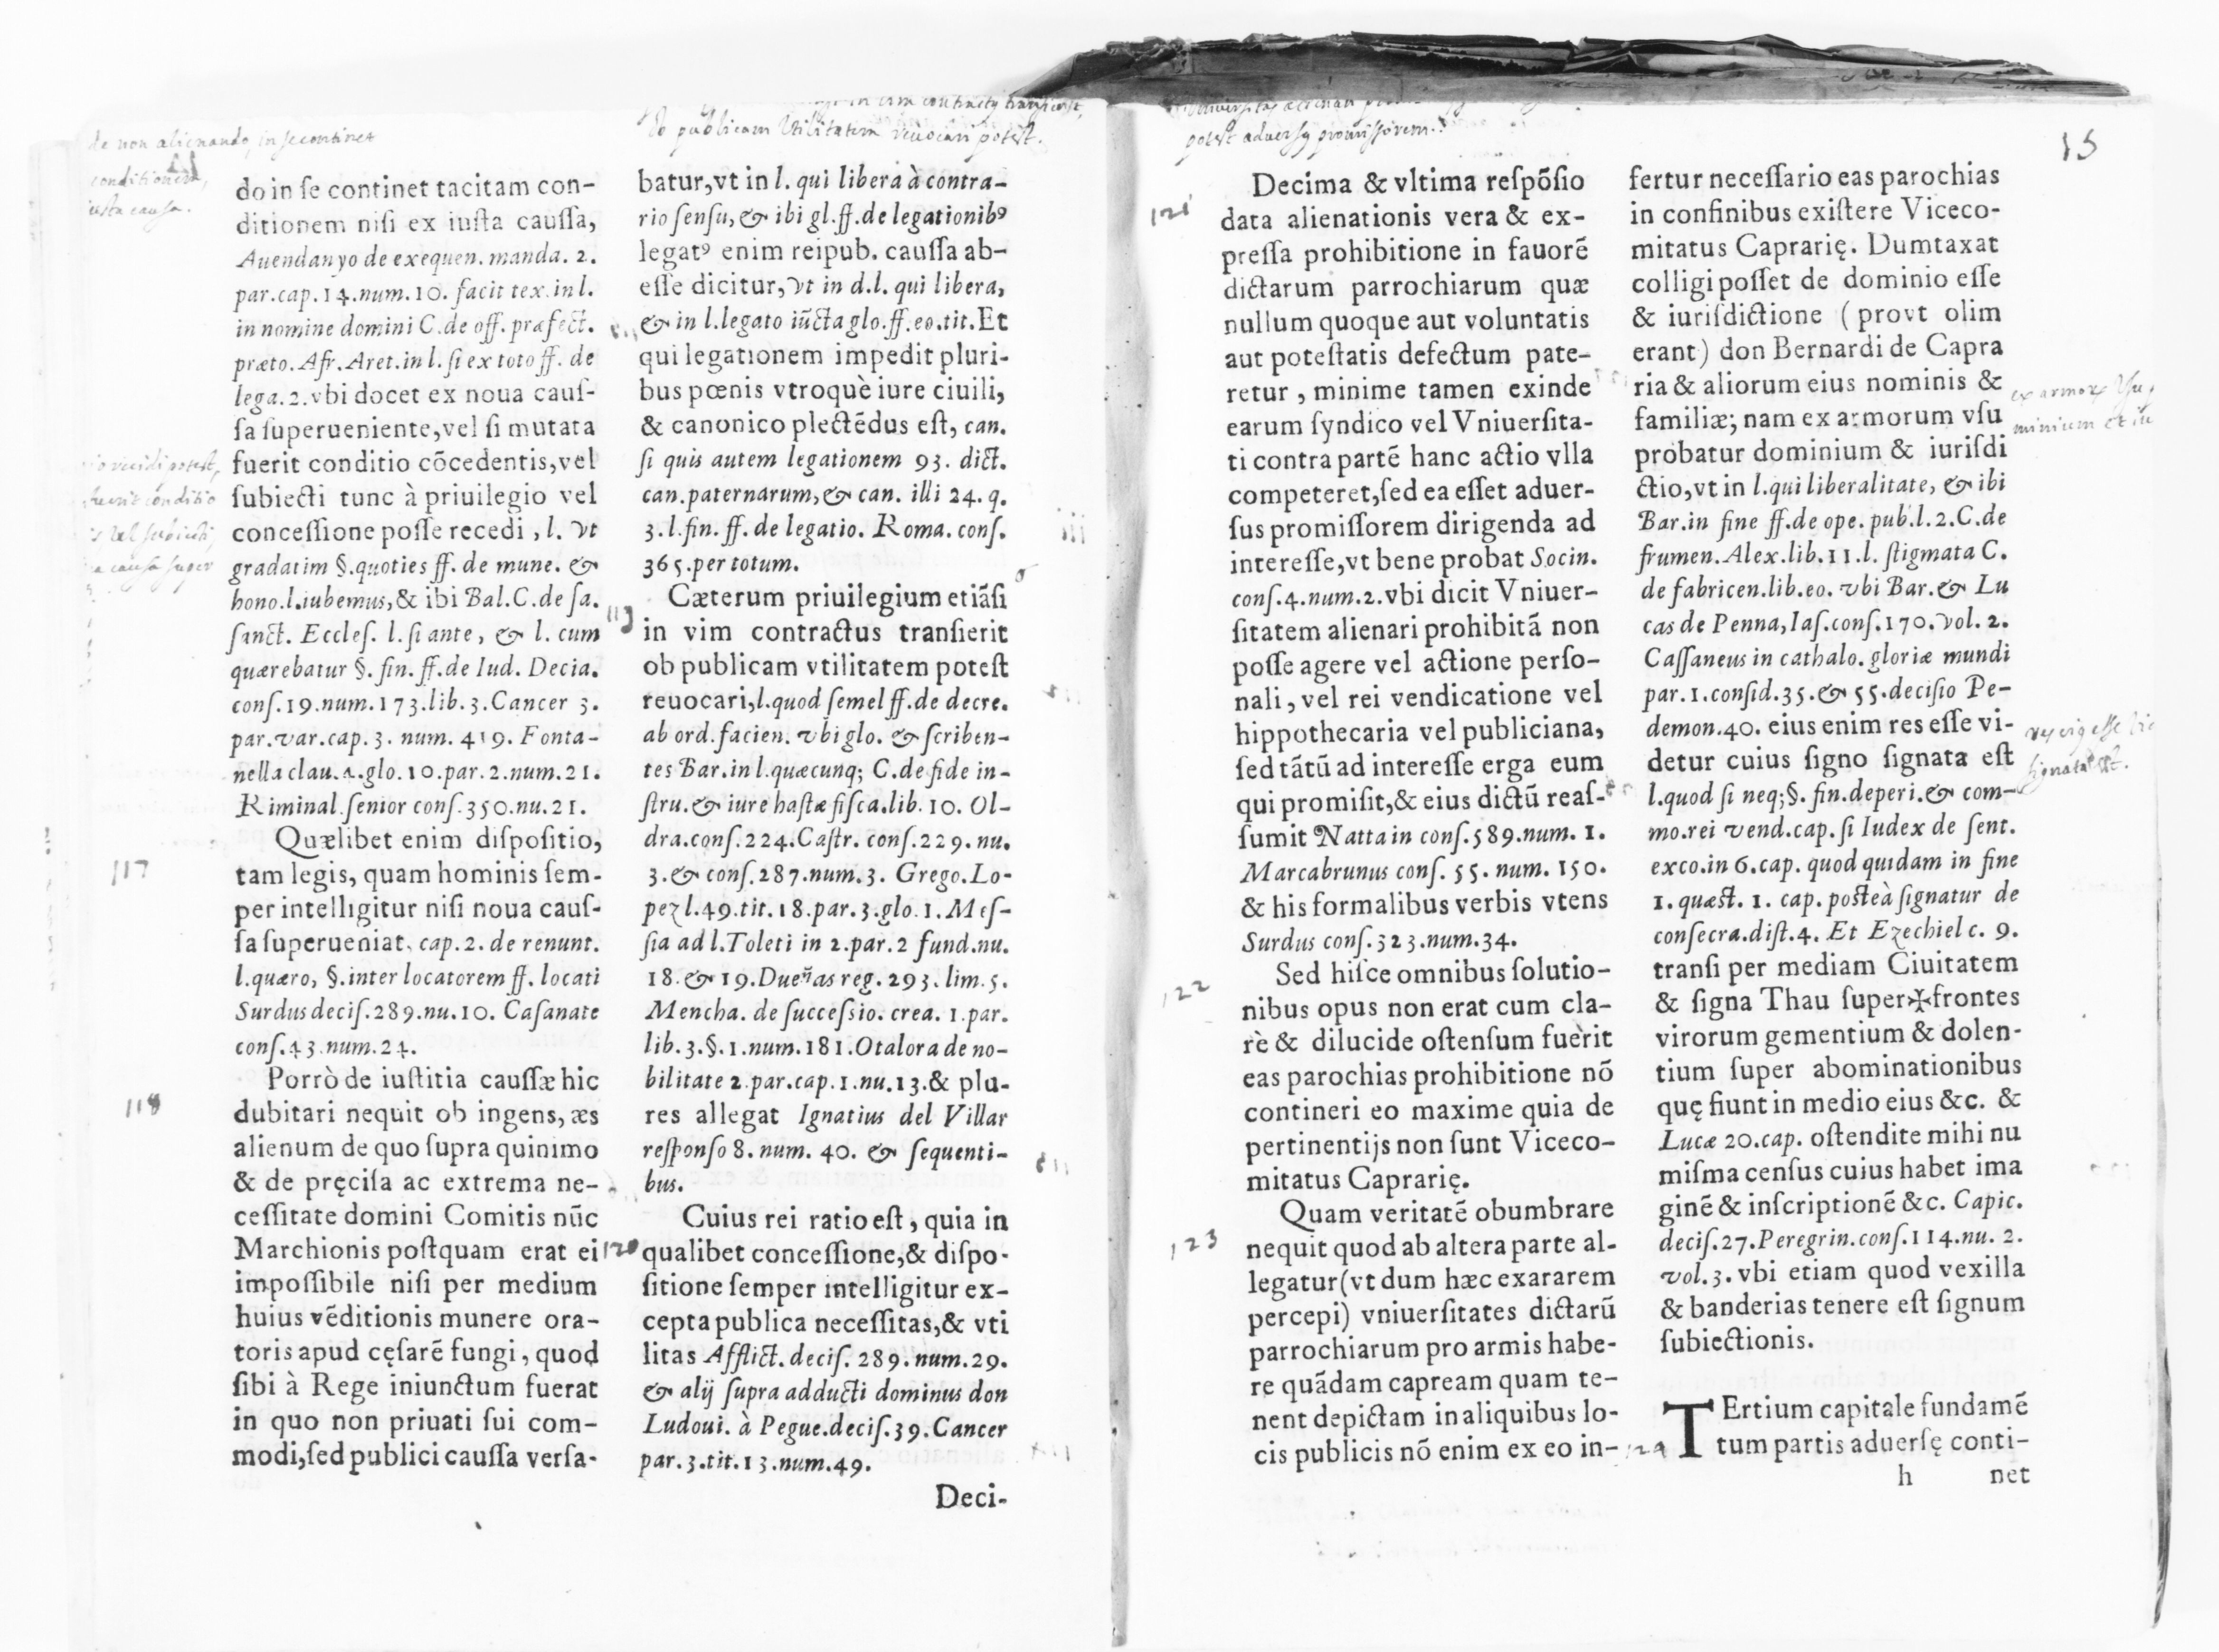 de non alienando, in se continet
conditionem,
iusta causa.
do in ſe continet tacitam con-
ditionem niſi ex iuſta cauſſa,
Auendanyo de exequen. manda. 2.
par.cap.14.num.10. facit tex.in l.
in nomine domini C.de off. præfect.
præto. Afr. Aret. in l. ſi ex toto ff. de
lega. 2.vbi docet ex noua cauſ-
ſa ſuperueniente,vel ſi mutata
fuerit conditio cõcedentis,vel
ſubiecti tunc à priuilegio vel
conceſſione poſſe recedi, l. vt
gradatim §.quoties ff. de mune. &
hono.l.iubemus,& ibi Bal.C.de ſa.
ſanct. Eccleſ. l. ſi ante, & l. cum
quærebatur §. fin. ff.de Iud. Decia.
conſ.19.num.173.lib.3.Cancer 3.
par.var.cap. 3. num. 419. Fonta-
nella clau.4.glo.10.par.2.num.21.
Riminal.ſenior conſ.350.nu.21.
117
Quælibet enim diſpoſitio,
tam legis, quam hominis ſem-
per intelligitur niſi noua cauſ-
ſa ſuperueniat. cap.2. de renunt.
l.quæro, §.inter locatorem ff. locati
Surdus deciſ.289.nu.10. Caſanate
conſ.43.num.24.
118
Porrò de iuſtitia cauſſæ hic
dubitari nequit ob ingens, æs
alienum de quo ſupra quinimo
& de pręciſa ac extrema ne-
ceſſitate domini Comitis nũc
Marchionis poſtquam erat ei
impoſſibile niſi per medium
huius vẽditionis munere ora-
toris apud cęſarẽ fungi, quod
ſibi à Rege iniunctum fuerat
in quo non priuati ſui com-
modi,ſed publici cauſſa verſa-
ob publicam Vtilitatem reuocari potest.
batur,vt in l. qui libera à contra-
rio ſenſu, & ibi gl.ff.de legationibꝰ
legatꝰ enim reipub. cauſſa ab-
eſſe dicitur, vt in d.l. qui libera,
& in l.legato iũcta glo.ff.eo.tit.Et
qui legationem impedit pluri-
bus pœnis vtroquè iure ciuili,
& canonico plectẽdus eſt, can.
ſi quis autem legationem 93. diſt.
can.paternarum, & can. illi 24. q.
3.l.fin. ff. de legatio. Roma. conſ.
365.per totum.
119
Cæterum priuilegium etiãſi
in vim contractus tranſierit
ob publicam vtilitatem poteſt
reuocari,l.quod ſemel ff.de decre.
ab ord.facien. vbi glo. & ſcriben-
tes Bar.in l.quæcunq; C.de fide in-
ſtru.& iure haſtæ fiſca.lib. 10. Ol-
dra.conſ.224.Caſtr. conſ.229. nu.
3.& conſ.287.num.3. Grego.Lo-
pez l.49.tit.18.par.3.glo.1.Meſ-
ſia ad l.Toleti in 2.par.2 fund.nu.
18.& 19.Dueñas reg.293.lim.5.
Mencha. de ſucceſſio. crea. 1.par.
lib.3.§.1.num.181.Otalora de no-
bilitate 2.par.cap.1.nu.13.& plu-
res allegat Ignatius del Villar
reſponſo 8.num. 40. & ſequenti-
bus.
120
Cuius rei ratio eſt, quia in
qualibet conceſſione,& diſpo-
ſitione ſemper intelligitur ex-
cepta publica neceſſitas,& vti
litas Afflict.deciſ.289.num.29.
& alij ſupra adducti dominus don
Ludoui. à Pegue.deciſ.39.Cancer
par.3.tit.13.num.49.
Deci-
potest aduersus promissorem.
15
121
Decima & vltima reſpõſio
data alienationis vera & ex-
preſſa prohibitione in fauorẽ
dictarum parrochiarum quæ
nullum quoque aut voluntatis
aut poteſtatis defectum pate-
retur, minime tamen exinde
earum ſyndico vel Vniuerſita-
ti contra partẽ hanc actio vlla
competeret,ſed ea eſſet aduer-
ſus promiſſorem dirigenda ad
intereſſe,vt bene probat Socin.
conſ.4.num.2.vbi dicit Vniuer-
ſitatem alienari prohibitã non
poſſe agere vel actione perſo-
nali, vel rei vendicatione vel
hippothecaria vel publiciana,
ſed tãtũ ad intereſſe erga eum
qui promiſit,& eius dictũ reaſ-
ſumit Natta in conſ.589.num. 1.
Marcabrunus conſ. 55. num. 150.
& his formalibus verbis vtens
Surdus conſ.323.num.34.
122
Sed hiſce omnibus ſolutio-
nibus opus non erat cum cla-
rè & dilucide oſtenſum fuèrit
eas parochias prohibitione nõ
contineri eo maxime quia de
pertinentijs non ſunt Viceco-
mitatus Caprarię.
123
Quam veritatẽ obumbrare
nequit quod ab altera parte al-
legatur(vt dum hæc exararem
percepi) vniuerſitates dictarũ
parrochiarum pro armis habe-
re quãdam capream quam te-
nent depictam in aliquibus lo-
cis publicis nõ enim ex eo in-
fertur neceſſario eas parochias
in confinibus exiſtere Viceco-
mitatus Caprarię. Dumtaxat
colligi poſſet de dominio eſſe
& iuriſdictione ( provt olim
erant) don Bernardi de Capra
ria & aliorum eius nominis &
familiæ; nam ex armorum vſu
probatur dominium & iuriſdi
ctio,vt in l.qui liberalitate, & ibi
Bar.in fine ff.de ope. pub.l.2.C.de
frumen. Alex.lib.11.l. ſtigmata C.
de fabricen.lib.eo. vbi Bar.& Lu
cas de Penna,Iaſ.conſ.170.vol. 2.
Caſſaneus in cathalo.gloriæ mundi
par.1.conſid.35.& 55.deciſio Pe-
demon.40. eius enim res eſſe vi-
detur cuius ſigno ſignata eſt
l.quod ſi neq;§. fin.de peri.& com-
mo.rei vend.cap. ſi Iudex de ſent.
exco.in 6.cap. quod quidam in fine
1.quæſt. 1. cap. poſteà ſignatur de
conſecra.diſt.4. Et Ezechiel c. 9.
tranſi per mediam Ciuitatem
& ſigna Thau ſuper✠frontes
virorum gementium & dolen-
tium ſuper abominationibus
quę fiunt in medio eius &c. &
Lucæ 20.cap. oſtendite mihi nu
miſma cenſus cuius habet ima
ginẽ & inſcriptionẽ &c. Capic.
deciſ.27.Peregrin.conſ.114.nu. 2.
vol.3. vbi etiam quod vexilla
& banderias tenere eſt ſignum
ſubiectionis.
124
TErtium capitale fundamẽ
tum partis aduerſę conti-
h net